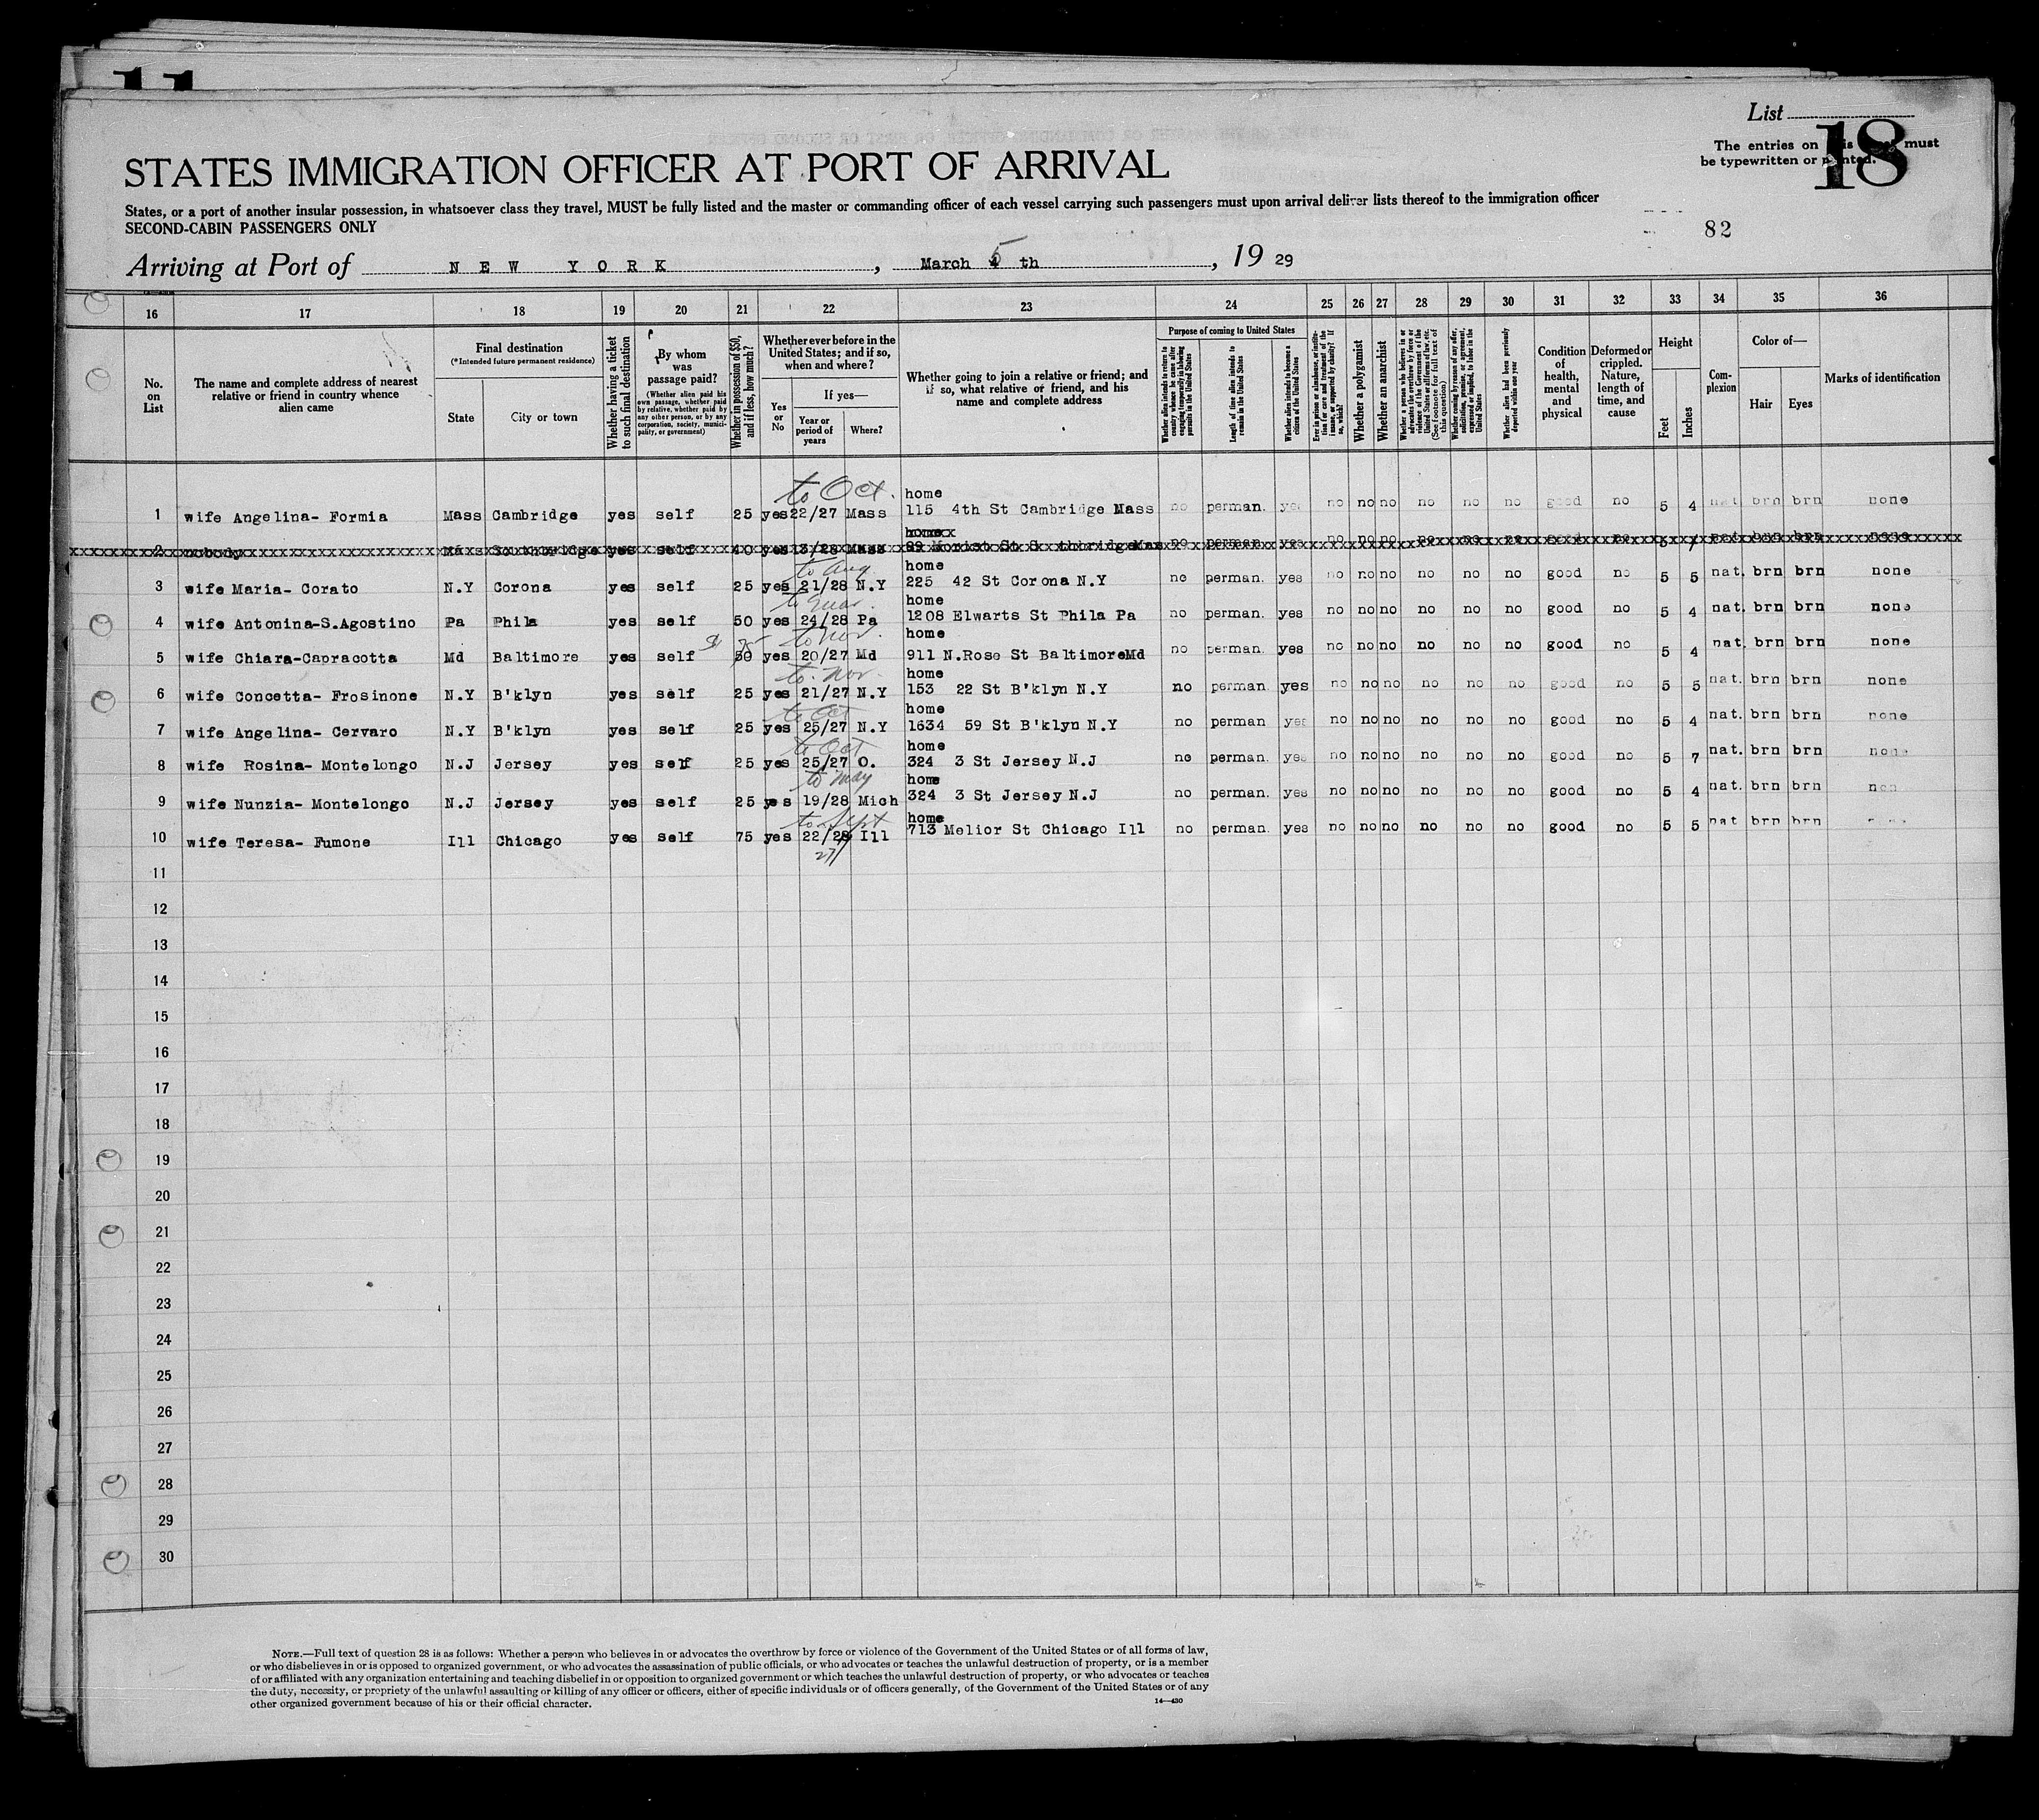 11
List
18
The entries on must
be typewritten or printed.
STATES IMMIGRATION OFFICER AT PORT OF ARRIVAL
States, or a port of another insular possession, in whatsoever class they travel, MUST be fully listed and the master or commanding officer of each vessel carrying such passengers must upon arrival deliver lists thereof to the immigration officer
SECOND-CABIN PASSENGERS ONLY
82
Arriving at Port of NEW YORK, March 5 th, 19 29
16 17 18 19 20 21 22 23 24 25 26 27 28 29 30 31 32 33 34 35 36
No. on List
The name and complete address of nearest relative or friend in country whence alien came
Final destination
(*Intended future permanent residence)
State
City or town
Whether having a ticket to such final destination
By whom was passage paid?
(Whether alien paid his own passage, whether paid by relative, whether paid by any other person, or by any corporation, society, municipality, or government)
Whether in possession of $50, and if less, how much?
Whether ever before in the United States; and if so, when and where?
Yes or No
If yes—
Year or period of years
Where?
Whether going to join a relative or friend; and if so, what relative or friend, and his name and complete address
Purpose of coming to United States
Whether alien intends to return to country whence he came after engaging temporarily in laboring pursuits in the United States
Length of time alien intends to remain in the United States
Whether alien intends to become a citizen of the United States
Ever in prison or almshouse, or institution for care and treatment of the insane, or supported by charity? If so, which?
Whether a polygamist
Whether an anarchist
Whether a person who believes in or advocates the overthrow by force or violence of the Government of the United States or all forms of law, etc. (See footnote for full text of this question)
Whether coming by reason of any offer, solicitation, promise, or agreement, expressed or implied, to labor in the United States
Whether alien had been previously deported within one year
Condition of health, mental and physical
Deformed or crippled. Nature, length of time, and cause
Height
Feet
Inches
Complexion
Color of—
Hair
Eyes
Marks of identification
to Oct.
home
1 wife Angelina- Formia Mass Cambridge yes self 25 yes 22/27 Mass 115 4th St Cambridge Mass no perman. yes no no no no no no good no 5 4 nat. brn brn none
homexx
2 nobody Mass Southbridge yes self 40 yes 13/28 Mass 89 St Southbridge Mas no perman yes no no no no no no good no 5 7 nat. brn brn none
to Aug.
home
3 wife Maria- Corato N.Y Corona yes self 25 yes 21/28 N.Y 225 42 St Corona N.Y no perman. yes no no no no no no good no 5 5 nat. brn brn none
home
4 wife Antonina-S.Agostino Pa Phila yes self 50 yes 24/28 Pa 1208 Elwarts St Phila Pa no perman. yes no no no no no no good no 5 4 nat. brn brn none
to Nov.
home
5 wife Chiara-Capracotta Md Baltimore yes self 50 yes 20/27 Md 911 N.Rose St BaltimoreMd no perman. yes no no no no no no good no 5 4 nat. brn brn none
to. Nov.
home
6 wife Concetta- Frosinone N.Y B'klyn yes self 25 yes 21/27 N.Y 153 22 St B'klyn N.Y no perman yes no no no no no no good no 5 5 nat. brn brn none
to Oct
home
7 wife Angelina- Cervaro N.Y B'klyn yes self 25 yes 25/27 N.Y 1634 59 St B'klyn N.Y no perman yes no no no no no no good no 5 4 nat. brn brn none
to Oct
home
8 wife Rosina- Montelongo N.J Jersey yes self 25 yes 25/27 O. 324 3 St Jersey N.J no perman. yes no no no no no no good no 5 7 nat. brn brn none
to May
home
9 wife Nunzia- Montelongo N.J Jersey yes self 25 yes 19/28 Mich 324 3 St Jersey N.J no perman. yes no no no no no no good no 5 4 nat. brn brn non
to Sept
home
10 wife Teresa- Fumone Ill Chicago yes self 75 yes 22/28 Ill 713 Melior St Chicago Ill no perman. yes no no no no no no good no 5 5 nat brn brn
27
11
12
13
14
15
16
17
18
19
20
21
22
23
24
25
26
27
28
29
30
NOTE.—Full text of question 28 is as follows: Whether a person who believes in or advocates the overthrow by force or violence of the Government of the United States or of all forms of law,
or who disbelieves in or is opposed to organized government, or who advocates the assassination of public officials, or who advocates or teaches the unlawful destruction of property, or is a member
of or affiliated with any organization entertaining and teaching disbelief in or opposition to organized government or which teaches the unlawful destruction of property, or who advocates or teaches
the duty, necessity, or propriety of the unlawful assaulting or killing of any officer or officers, either of specific individuals or of officers generally, of the Government of the United States or of any
other organized government because of his or their official character.
14—430